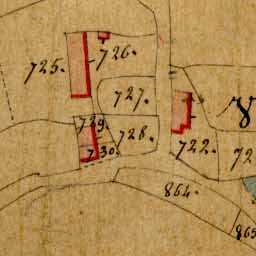 726.
725.
727.
729.
728.
730.
722.
72
864.
865